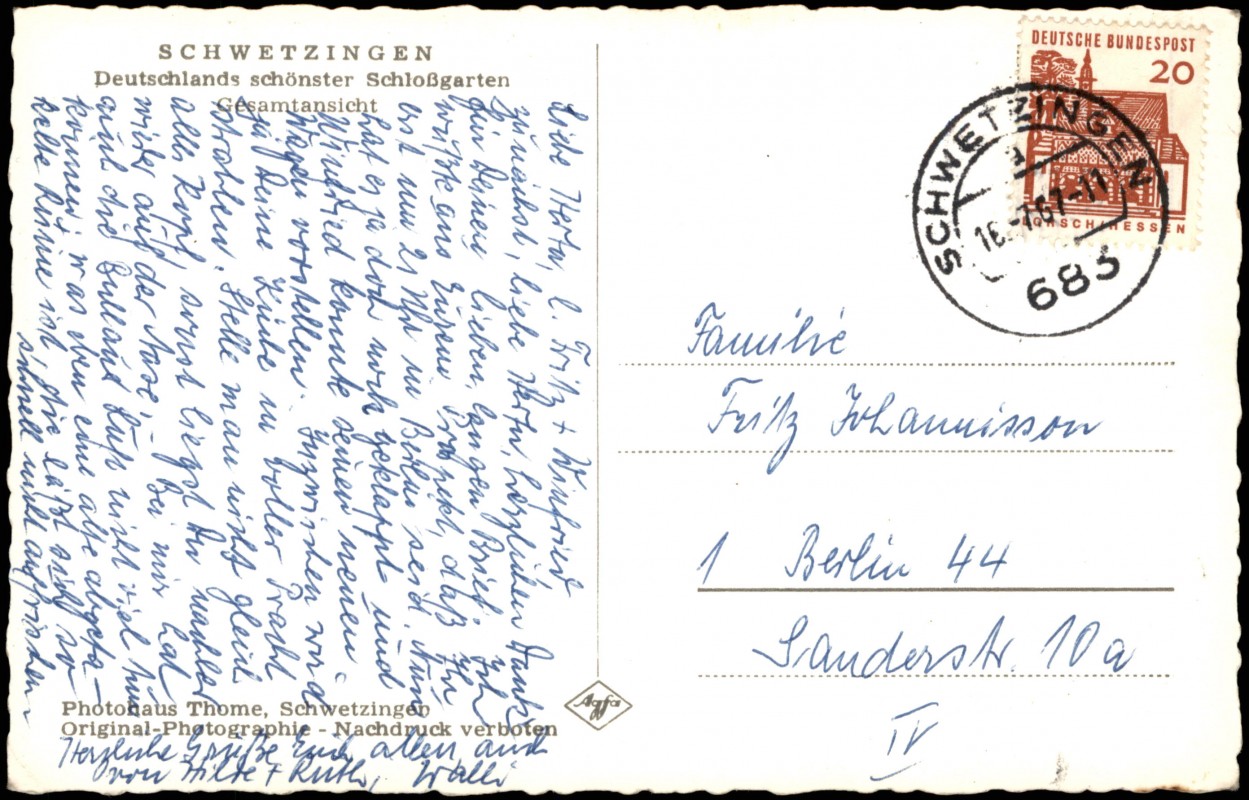 SCHWETZINGEN
Deutschlands schönster Schloßgarten
Gesamtansicht
Liebe Herta, l. Fritz + Winfried
zunächst, liebe Herta, herzlichen Dank
für Deinen lieben, langen Brief. Ich
wußte aus Eurem, daß Ihr
erst um 21 Uhr in Berlin seid. Nun
hat es ja doch noch geklappt und
Winfried konnte seinen neuen
Wagen vorstellen. Inzwischen wird
ja Deine Laube in voller Pracht
strahlen. Stelle man nicht gleich
alles Kopf, sonst liegst Du nachher
wieder auf der Nase. Bei mir hat
auch die Luft nicht viel tun
können, was eben eine alte abgeta-
kelte Ruine ist, die läßt sich so
schnell nicht auffrischen
Photohaus Thome, Schwetzingen
Original-Photographie - Nachdruck verboten
Herzliche Grüße Euch allen, auch
von Hilde + Ruth, Walli
Agfa
DEUTSCHE BUNDESPOST
20
LORSCH/HESSEN
SCHWETZINGEN
a
16.-7.67-11
683
Familie
Fritz Johannisson
1 Berlin 44
Sanderstr. 10a
IV